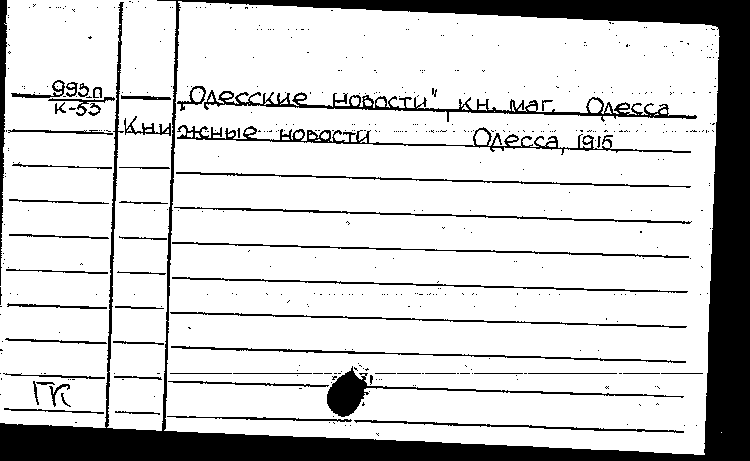 993п
К-53
„Одесские новости", кн. маг. Одесса
Книжные новости Одесса, 1915
ГК